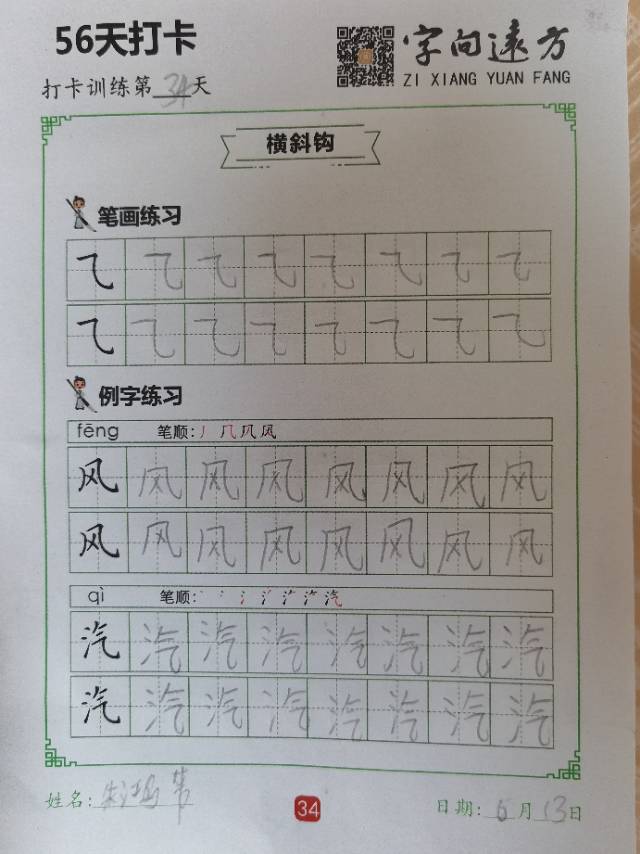 56天打卡
字向远方
ZI XIANG YUAN FANG
打卡训练第34天
横斜钩
笔画练习
乁乁乁乁乁乁乁乁
乁乁乁乁乁乁乁乁
例字练习
fēng 笔顺: 丿 几 风 风
风风风风风风风风
风风风风风风风风
qì 笔顺:
汽汽汽汽汽汽汽汽
汽汽汽汽汽汽汽汽
姓名:
34
日期: 6月13日